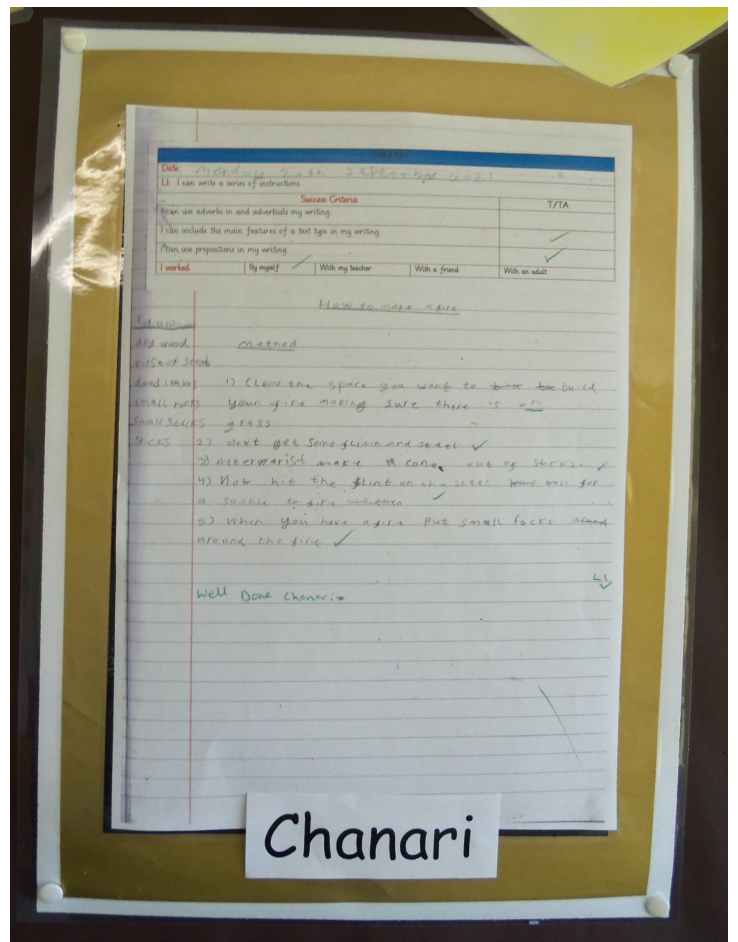 Date: Monday 20th September 2021
LI: I can write a series of instructions.
Success Criteria
T/TA
I can use adverbs in and adverbials my writing.
I can include the main features of a text type in my writing.
I can use prepositions in my writing
I worked By myself With my teacher With a friend With an adult
How to make a fire
dry wood
Method
dead leaves
1) Clear the space you want to build
small rocks
your fire making sure there is on
small sticks
grass
sticks
2) Next get some flint and steel
3) Afterwarist make a cone out of sticks.
4) Now hit the flint on the steel wait for
a
5) When you have a fire put small rocks
around the fire
LI
Well Done Chanari
Chanari